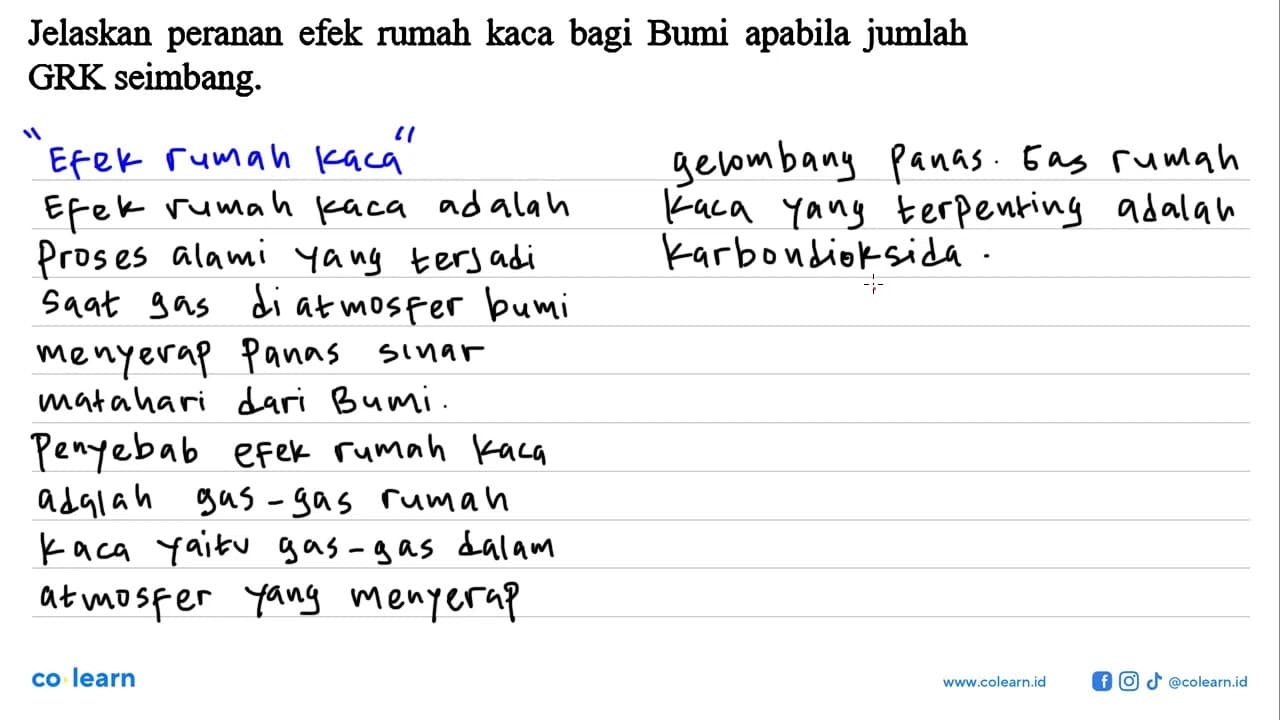 Jelaskan peranan efek rumah kaca bagi Bumi apabila jumlah
GRK seimbang.
"Efek rumah kaca"
Efek rumah kaca adalah
Proses alami yang terjadi
saat gas di atmosfer bumi
menyerap Panas sinar
matahari dari Bumi.
Penyebab efek rumah kaca
adalah gas-gas rumah
kaca yaitu gas-gas dalam
atmosfer yang menyerap
gelombang Panas. Gas rumah
kaca yang terpenting adalah
karbondioksida.
co learn
www.colearn.id
@colearn.id